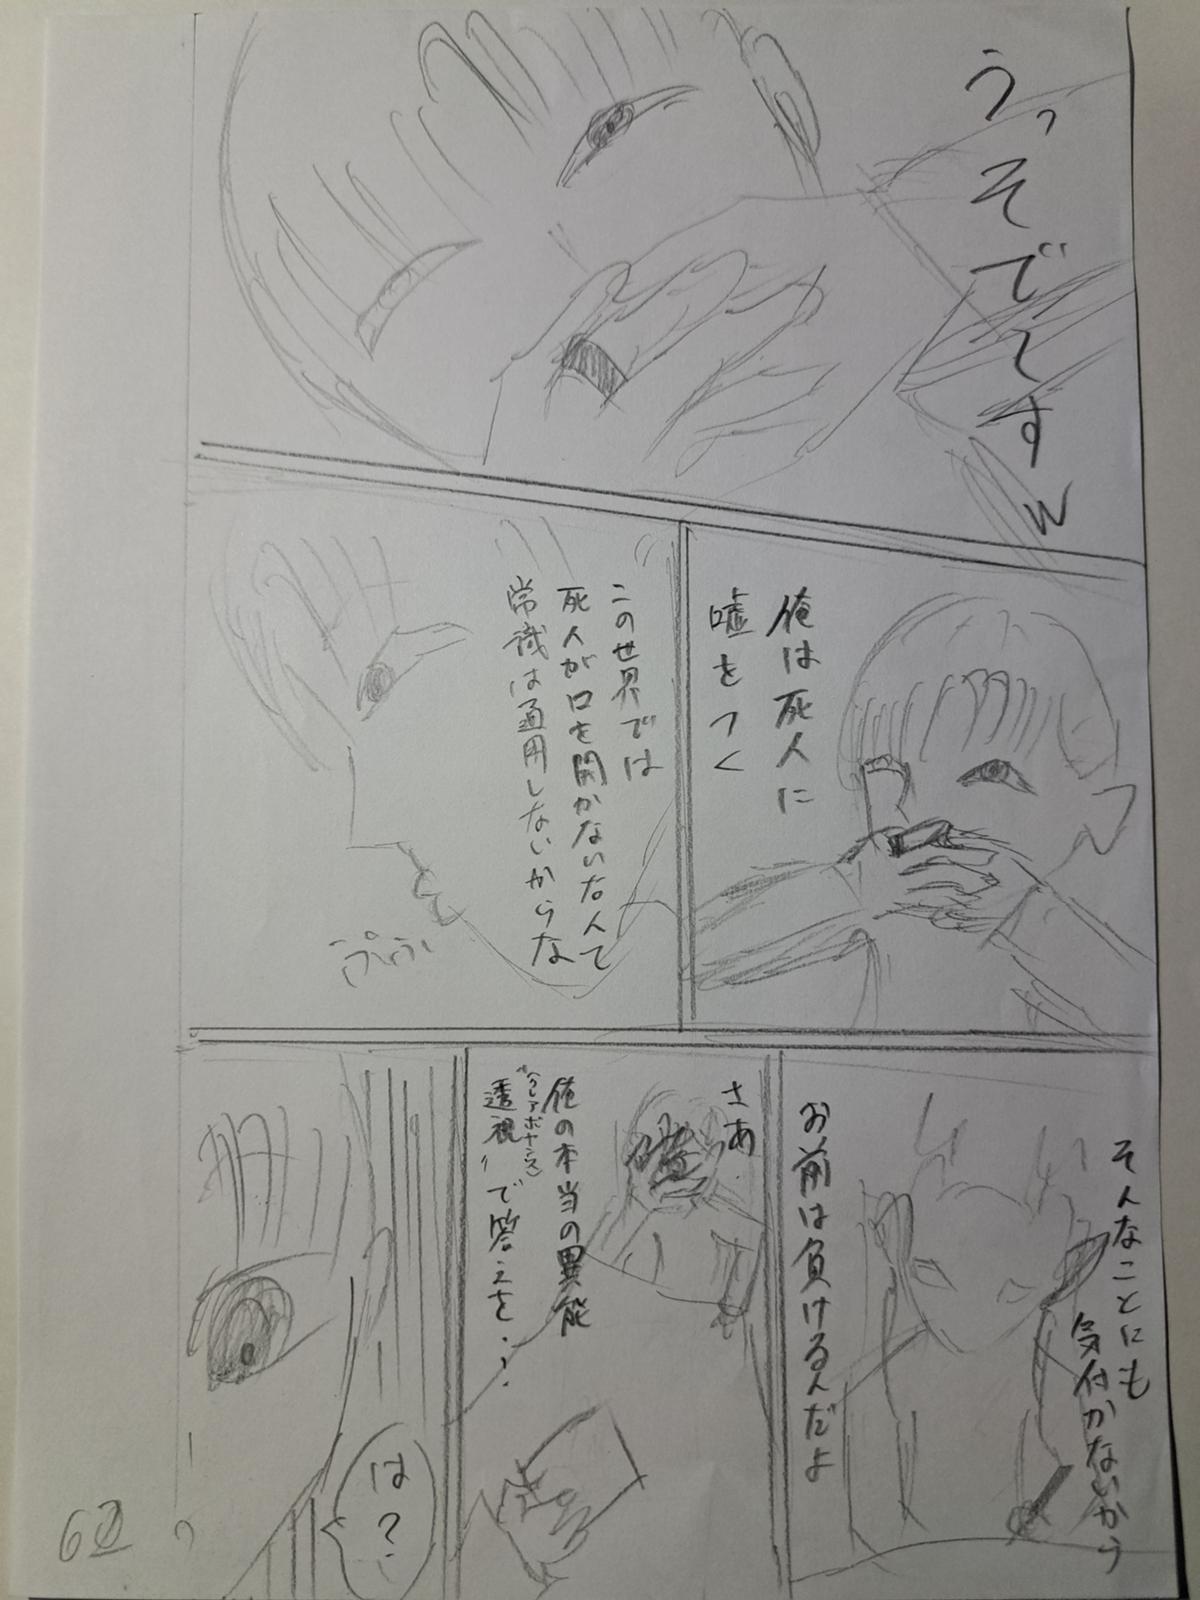 うっそでーすw
俺は死人に
嘘をつく
この世界では
死人が口を開かないなんて
常識は通用しないからな
ぷふふ
そんなことにも
気付かないから
お前は負けるんだよ
さあ
俺の本当の異能
(クレアボヤンス)
"透視"で答えを...
は?